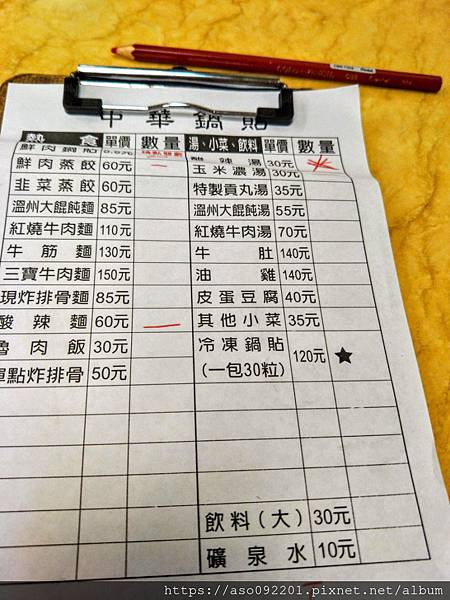 中華鍋貼
熱食 單價 數量 湯、小菜、飲料 單價 數量
鮮肉鍋貼 酸辣湯 30元
鮮肉蒸餃 60元 一 玉米濃湯 30元
韭菜蒸餃 60元 特製貢丸湯 35元
溫州大餛飩麵 85元 溫州大餛飩湯 55元
紅燒牛肉麵 110元 紅燒牛肉湯 70元
牛筋麵 130元 牛肚 140元
三寶牛肉麵 150元 油雞 140元
現炸排骨麵 85元 皮蛋豆腐 40元
酸辣麵 60元 一 其他小菜 35元
魯肉飯 30元 冷凍鍋貼 120元 ★
單點炸排骨 50元 (一包30粒)
飲料(大) 30元
礦泉水 10元
https://aso092201.pixnet.net/album